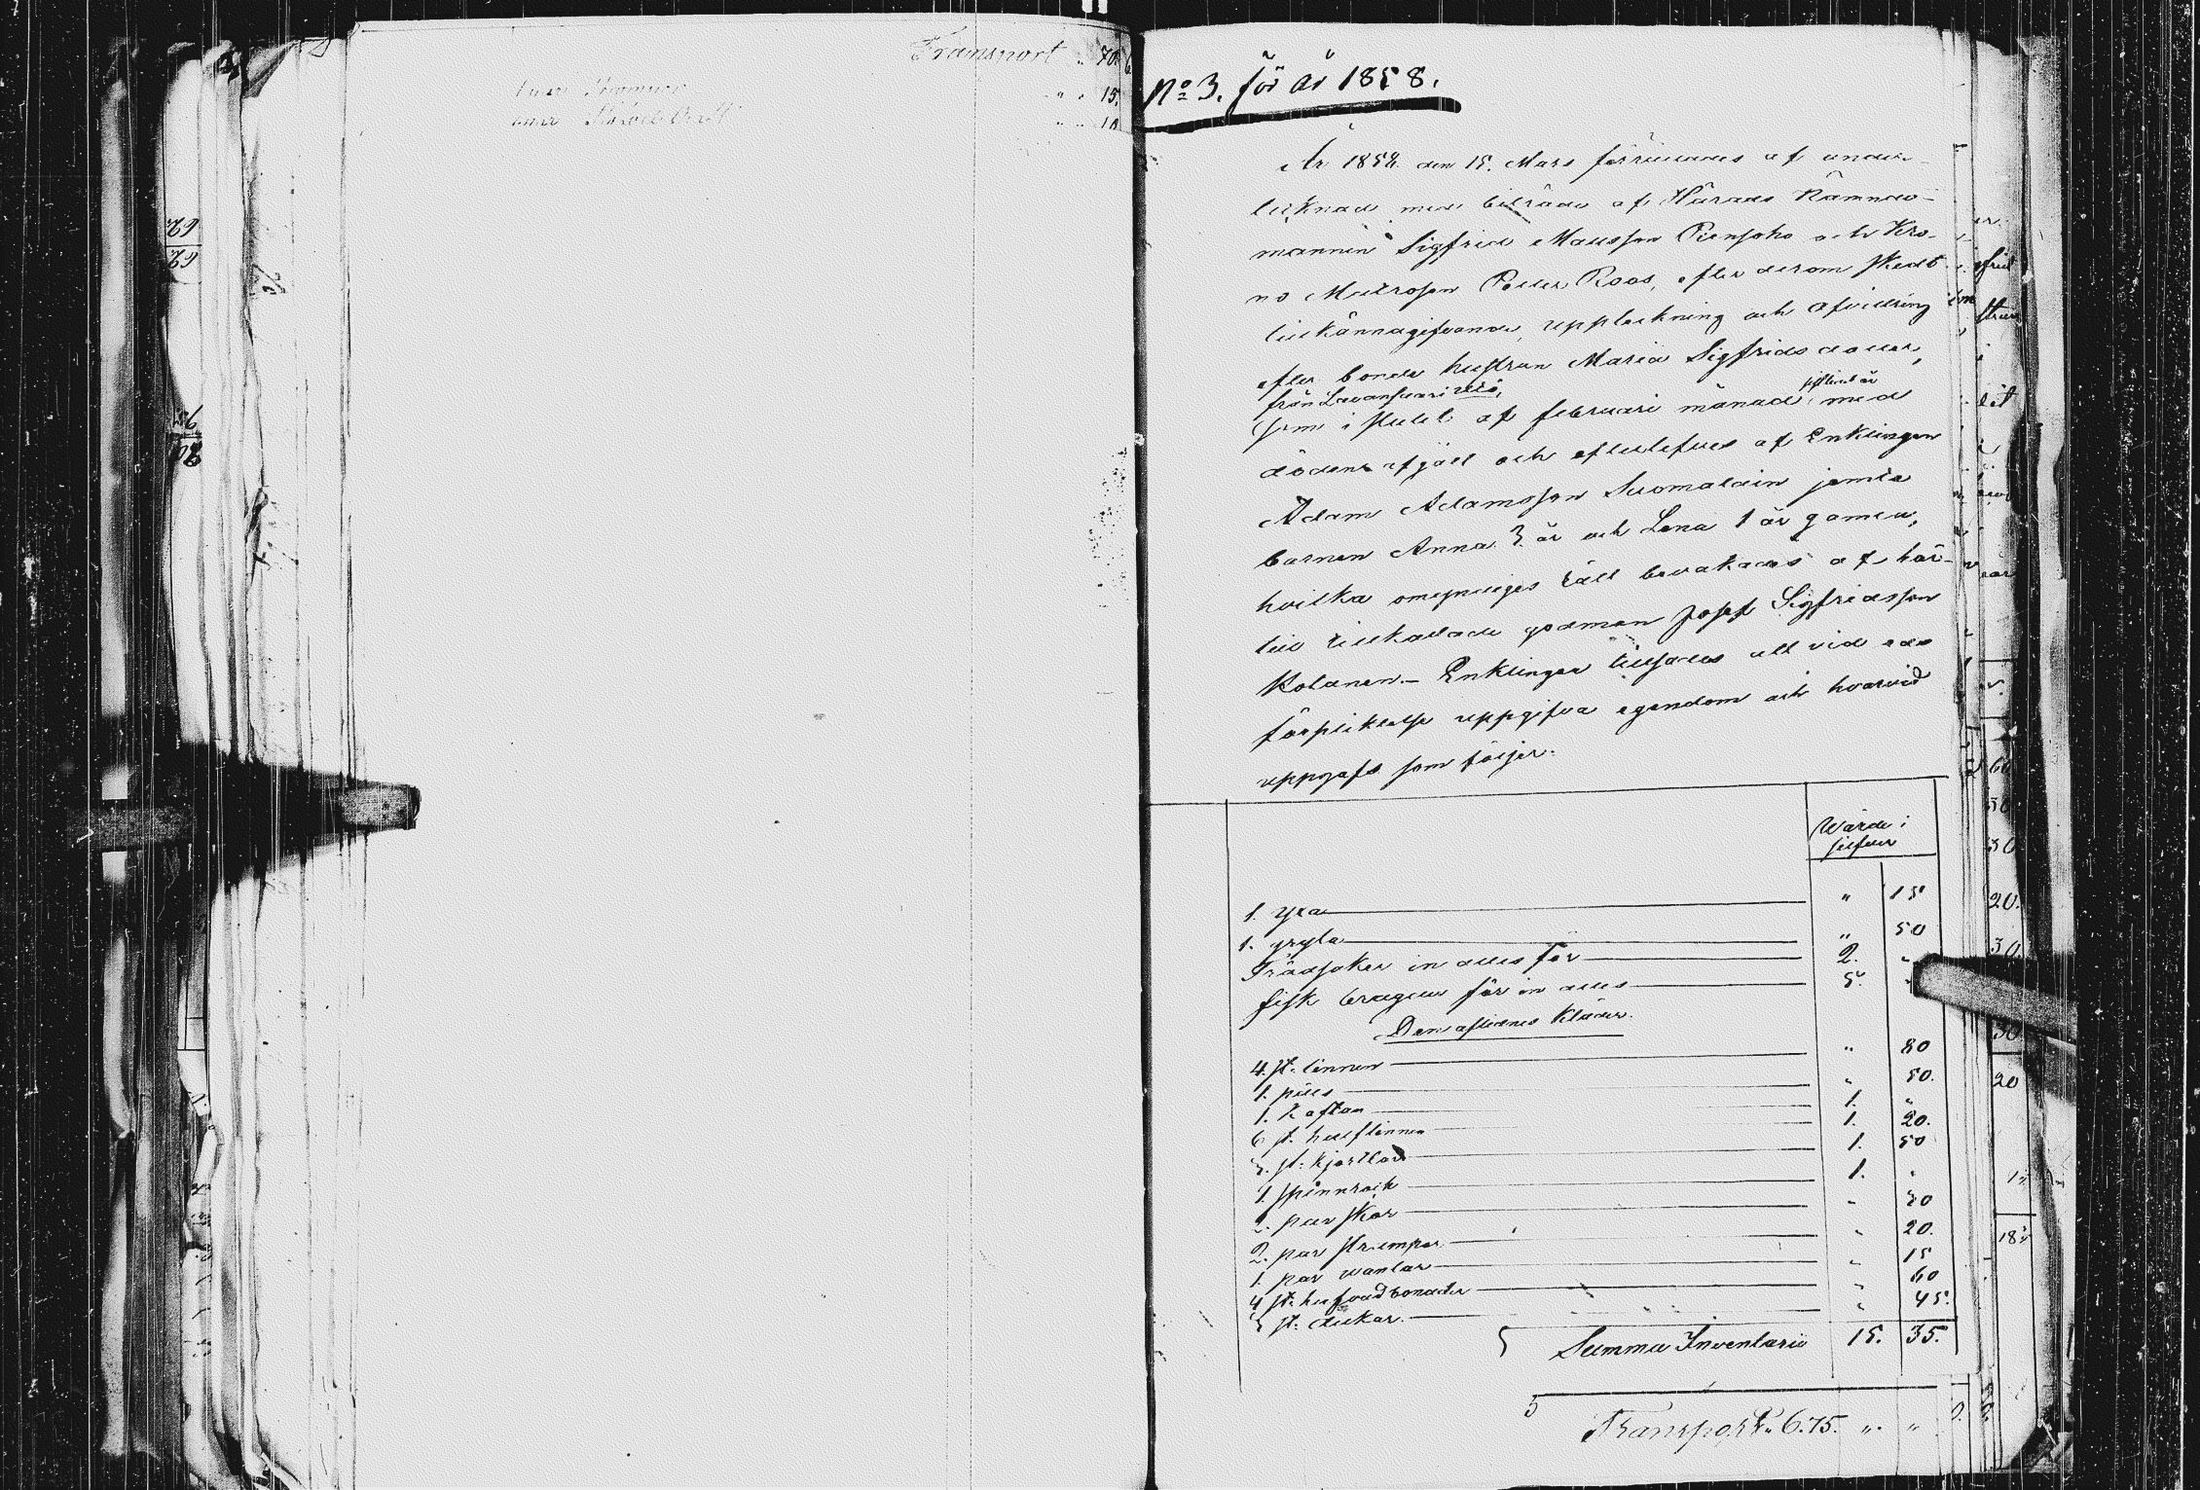 Transport 70. 6
15.
10
No 3. för år 1858.
År 1858 den 15. Mars förrättades af under-
tecknad med biträde af Härads Nämnde-
mannen Sigfrid Mattsson Piensoho och Kro-
no Matrosen Petter Roos, efter derom skedt
tillkännagifvande, uppteckning och afvittring
efter bonde hustrun Maria Sigfridsdotter,
från Lavansaari
som i slutet af februari månad sistlidet år med
döden afgått och efterlefves af Enklingen
Adam Adamsson Suomalain jemte
barnen Anna 3 år och Lena 1 år gamla,
hvilka omyndiges rätt bevakades af här-
till tillkallade godman Josef Sigfridsson
Kolanen. – Enklingen tillsades att vid eds
förpliktelse uppgifva egendom och hvarvid
uppgafs som följer.
Wärde i
silfver
1. yxa " 15
1. gryta " 50
Trädsaker in alles för 2. "
fisk bragder för in alles 5. "
Den aflidnes Kläder.
4. st. linnen " 80
1. päls " 50.
1. Kaftan 1. "
6 st. half linnen 1. 20.
3. st. kjortlar 1. 50
1. spinnrock 1. "
2. par skor " 30
2. par strumpor " 20.
1. par vantar " 15
4 st. hufvudbonader " 60
3 st. dukar. " 45.
Summa Inventarii 15. 35.
Transport. 6.75. " "